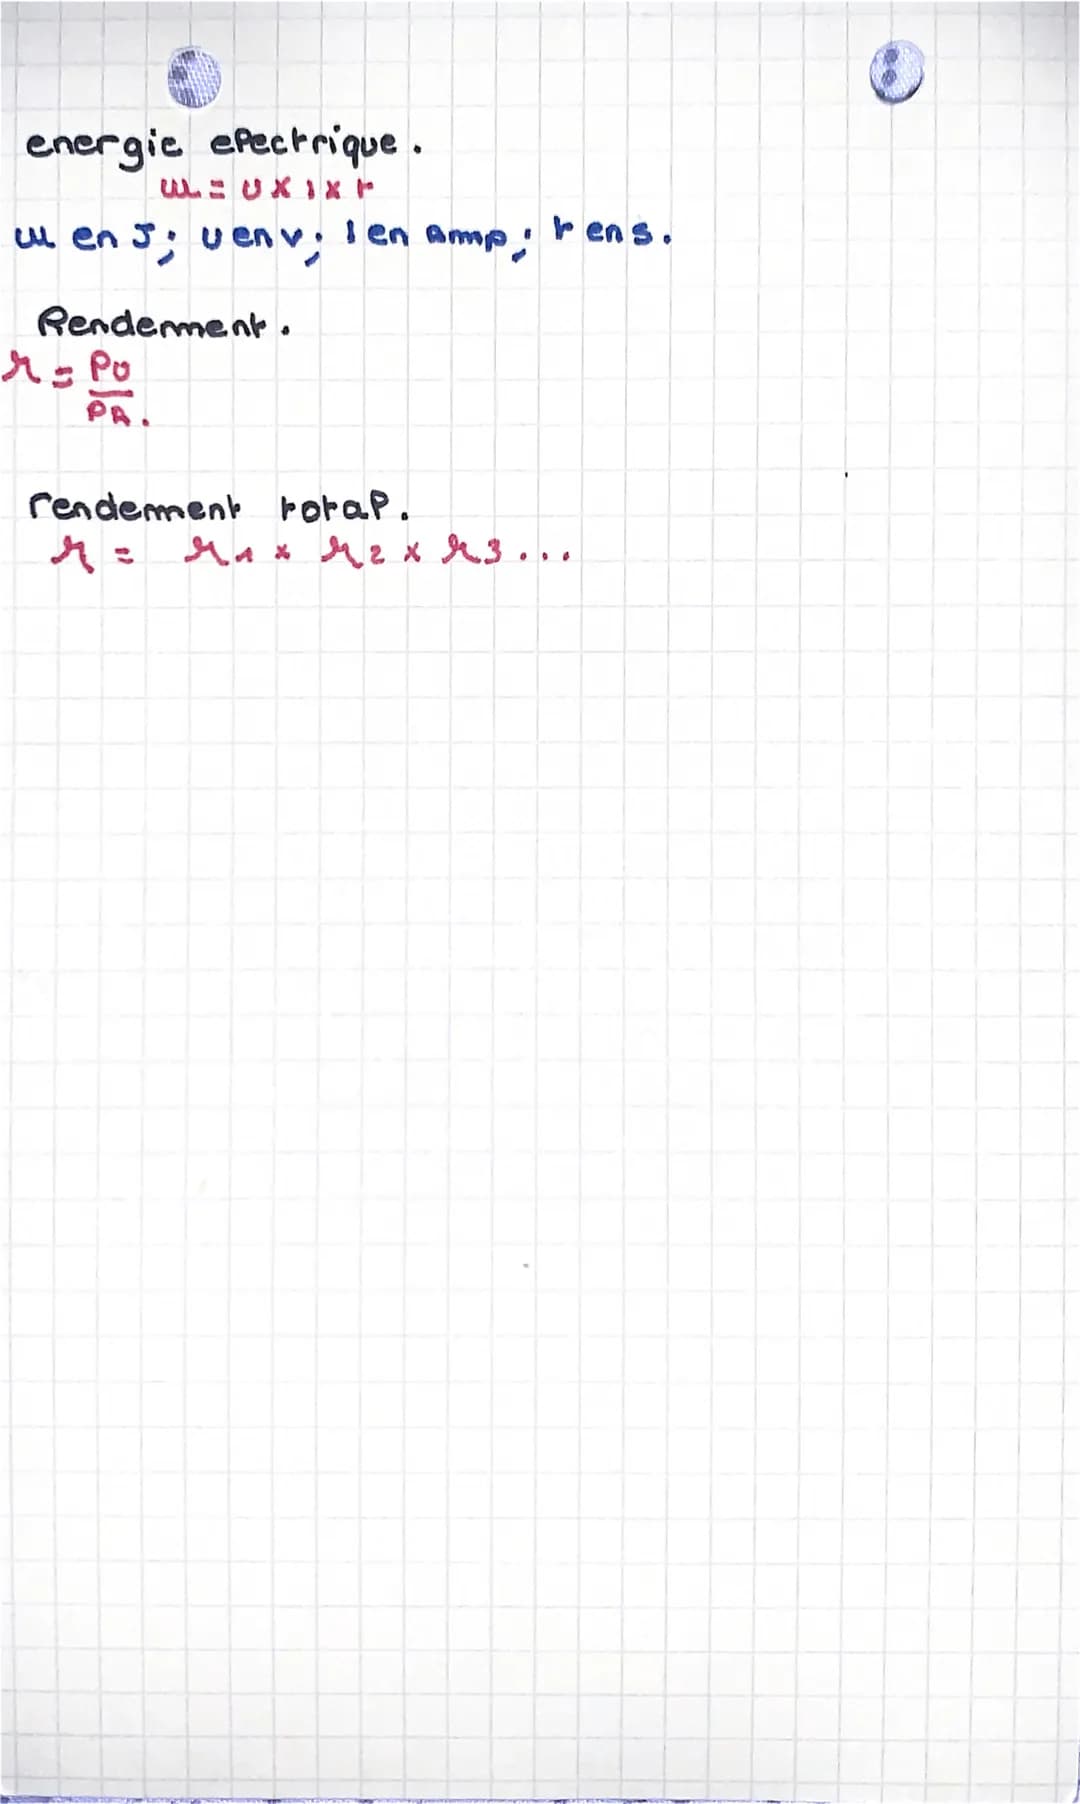 energie electrique.
W = U x I x t
W en J; U en V; I en Amp; t en s.
Rendement.
r = PU
PA.
rendement total.
r = r1 x r2 x r3...